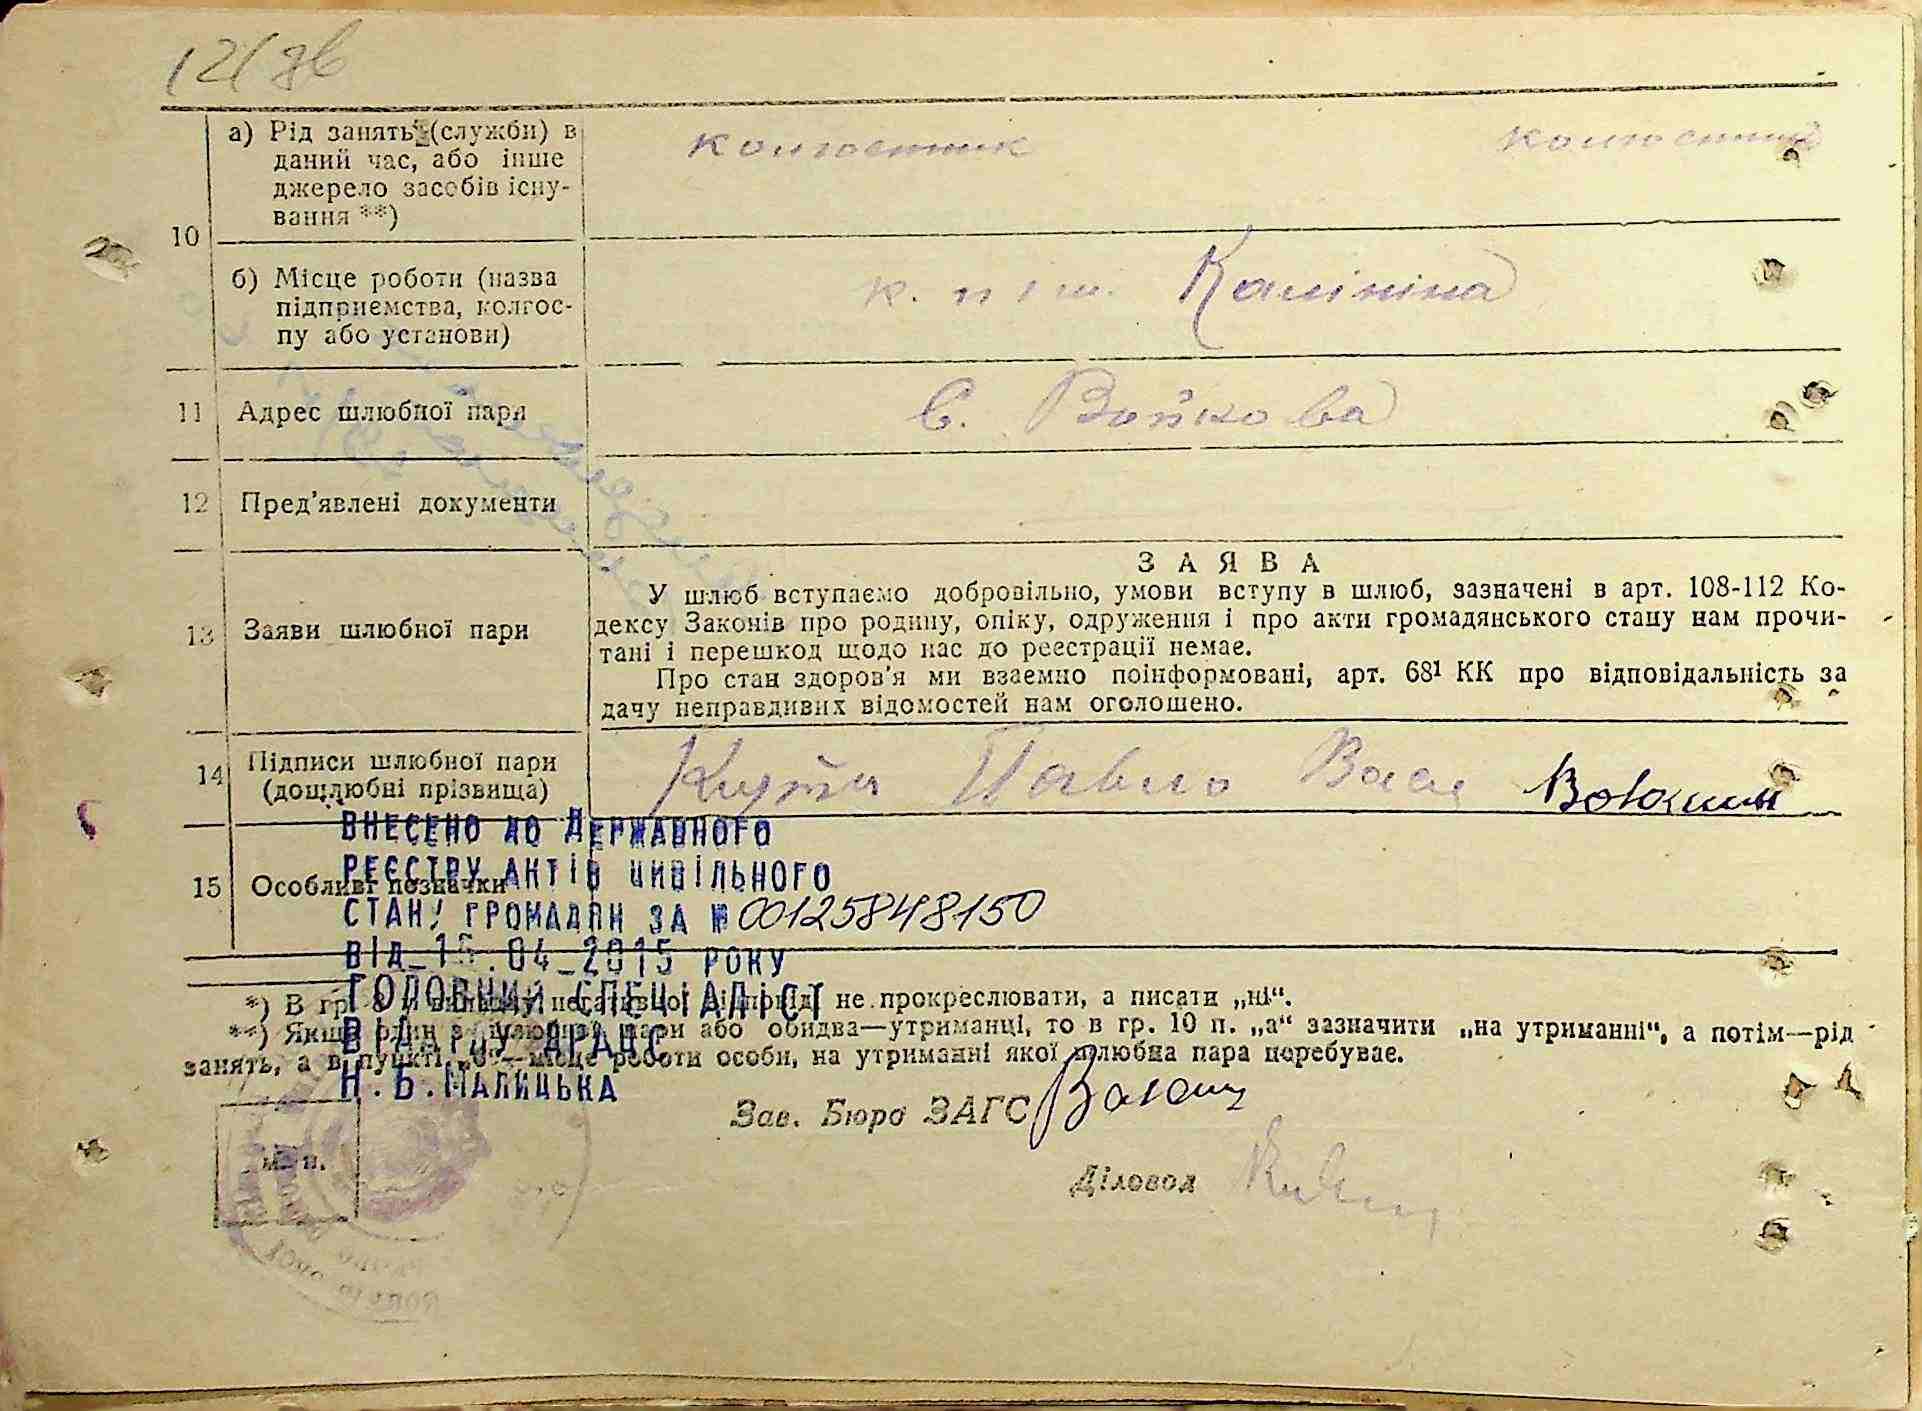 12/зв
а) Рід занять (служби) в
даний час, або інше
джерело засобів існу-
вання **)
колгоспник колгоспник
10
б) Місце роботи (назва
підприємства, колгос-
пу або установи)
к. п ім. Калініна
11 Адрес шлюбної пари
С. Войкова
12 Пред'явлені документи
13 Заяви шлюбної пари
ЗАЯВА
У шлюб вступаємо добровільно, умови вступу в шлюб, зазначені в арт. 108-112 Ко-
дексу Законів про родину, опіку, одруження і про акти громадянського стану нам прочи-
тані і перешкод щодо нас до реєстрації немає.
Про стан здоров'я ми взаємно поінформовані, арт. 68¹ КК про відповідальність за
дачу неправдивих відомостей нам оголошено.
14 Підписи шлюбної пари
(дошлюбні прізвища)
Павло Вас
15 Особливі позначки
ВНЕСЕНО ДО ДЕРЖАВНОГО
РЕЄСТРУ АКТІВ ЦИВІЛЬНОГО
СТАНУ ГРОМАДЯН ЗА № 00125848150
ВІД 15.04 2015 РОКУ
ГОЛОВНИЙ СПЕЦІАЛІСТ
ВІДДІЛУ ДРАЦС
Н.Б.МАЛИЦЬКА
*) В гр. не прокреслювати, а писати „ні“.
**) Якщо один з шлюбної пари або обидва—утриманці, то в гр. 10 п. „а“ зазначити „на утриманні“, а потім—рід
занять, а в пункті „б“—місце роботи особи, на утриманні якої шлюбна пара перебуває.
Зав. Бюро ЗАГС
м. п.
Діловод